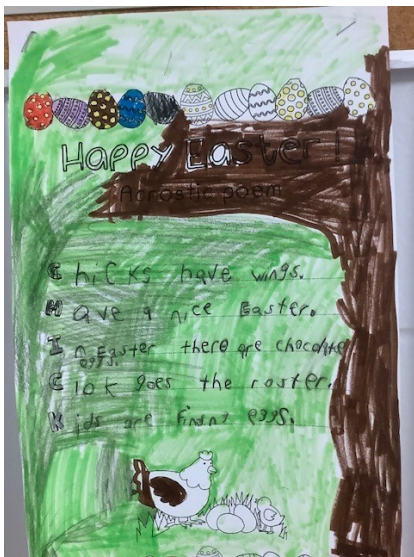 Happy Easter!
Acrostic poem
Chicks have wings.
Have a nice Easter.
In Easter there are chocolate
eggs.
Clok goes the roster.
Kids are findnt eggs.